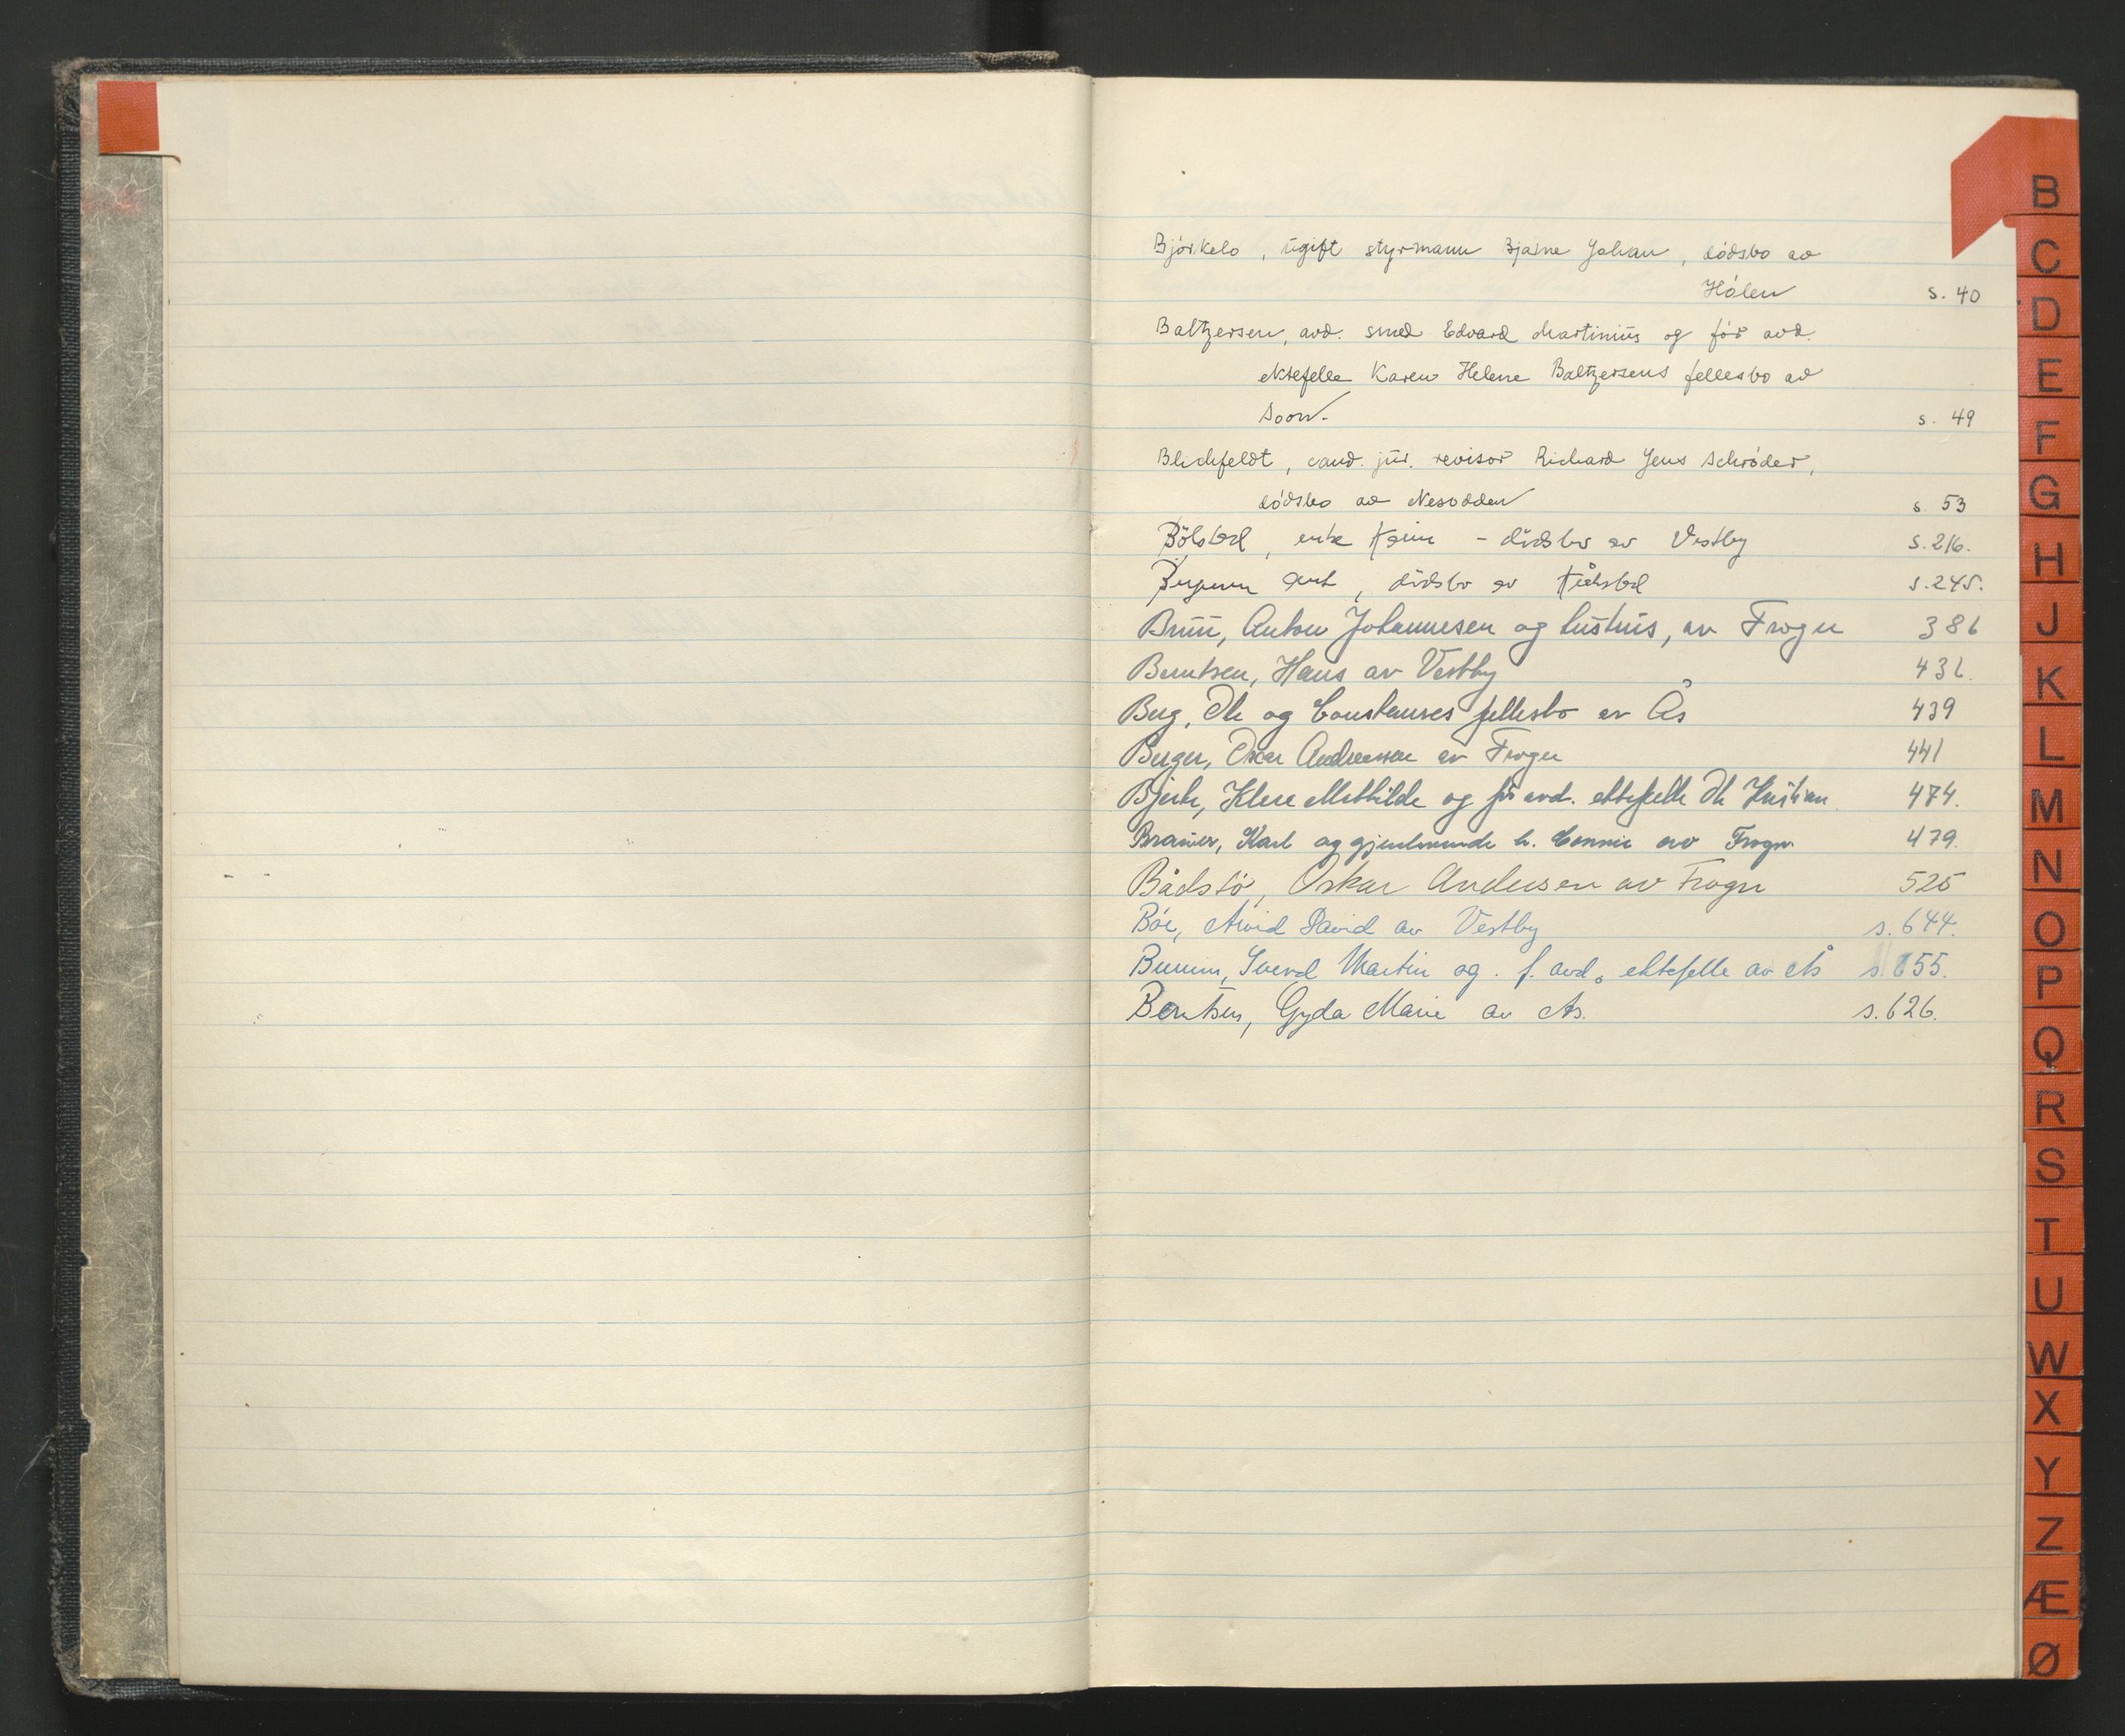 Björkelo, ugift styrmann Bjarne Johan, dödsbo av
Hölen s. 40
Baltzersen, avd. smed Edvard Martinius og för avd.
ektefelle Karen Helene Baltzersens fellesbo av
Soon. s. 49
Blichfeldt, cand. jur. revisor Richard Jens Schröder,
dödsbo av Nesodden s. 53
Bölstad, enke - dödsbo av Vestby s. 216.
dödsbo av s. 245.
Bruu, Anton Johannesen og hustrus, av Frogn 386
Berntsen, Hans av Vestby 432.
Berg, Ole og Constanses fellesbo av Ås 439
Berger, Oskar Andreassen av Frogn 441
Bjerke, Mathilde og för avd. ektefelle Ole Kristian 474.
Brauer, Karl og gjenlevende h. av Frogn 479.
Bådstö, Oskar Andersen av Frogn 525
Böe, Arvid David av Vestby s. 644.
Martin og f. avd. ektefelle av Ås s. 655.
Berntsen, Gyda Marie av Ås. s. 626.
B
C
D
E
F
G
H
J
K
L
M
N
O
P
Q
R
S
T
U
W
X
Y
Z
Æ
Ø